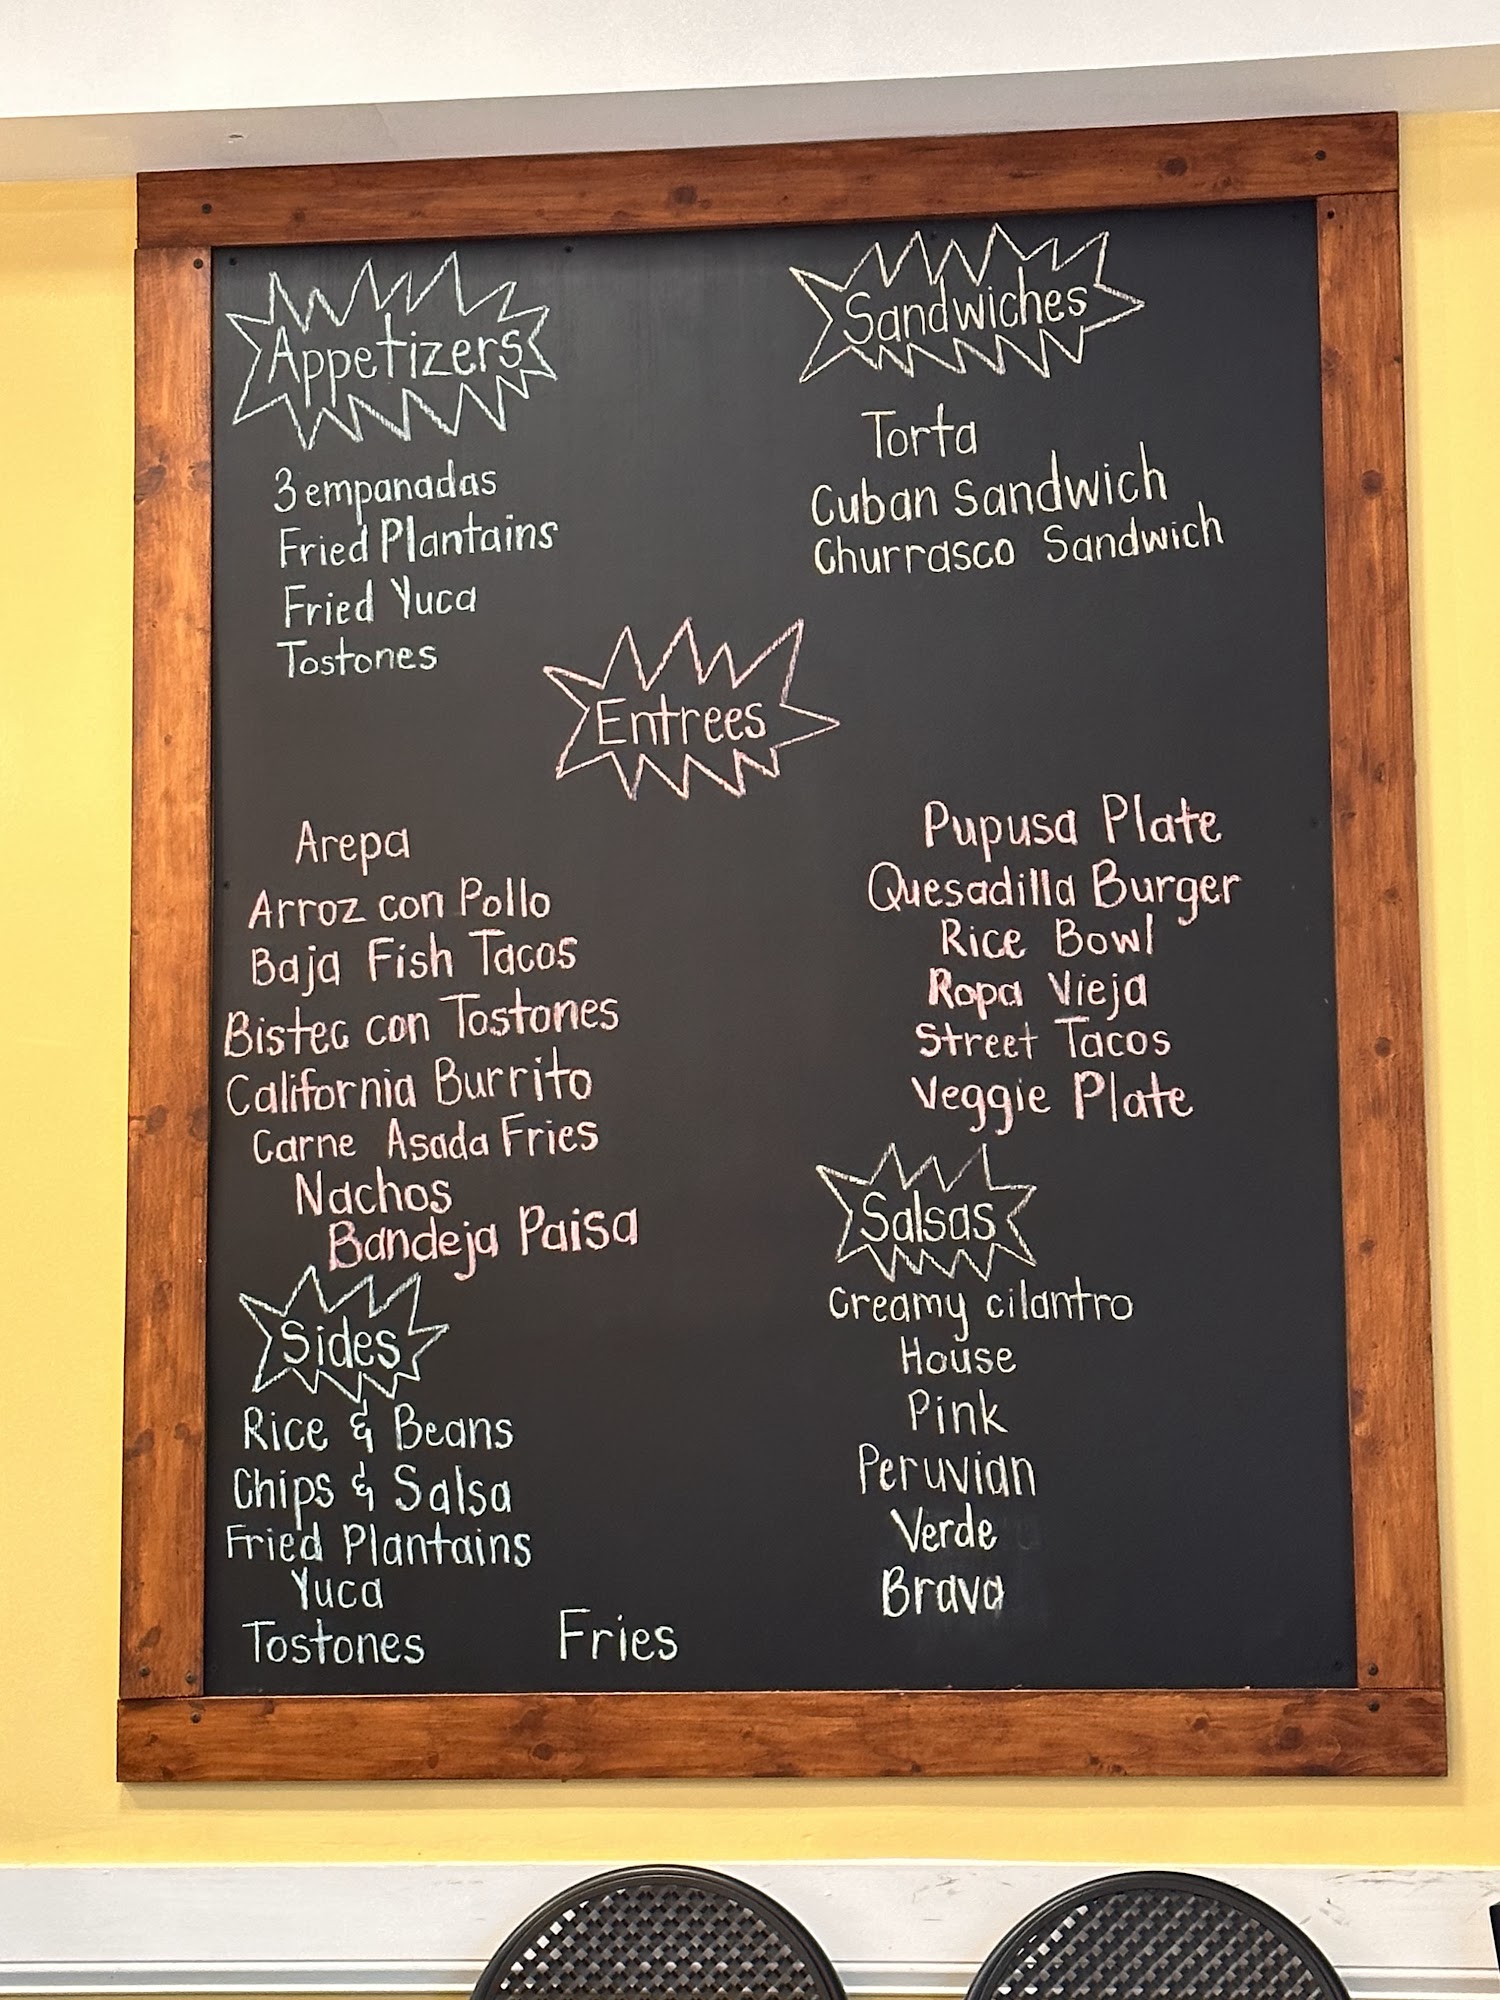 Appetizers
3 empanadas
Fried Plantains
Fried Yuca
Tostones
Sandwiches
Torta
Cuban Sandwich
Churrasco Sandwich
Entrees
Arepa
Arroz con Pollo
Baja Fish Tacos
Bistec con Tostones
California Burrito
Carne Asada Fries
Nachos
Bandeja Paisa
Pupusa Plate
Quesadilla Burger
Rice Bowl
Ropa Vieja
Street Tacos
Veggie Plate
Sides
Rice & Beans
Chips & Salsa
Fried Plantains
Yuca
Tostones
Fries
Salsas
Creamy cilantro
House
Pink
Peruvian
Verde
Brava